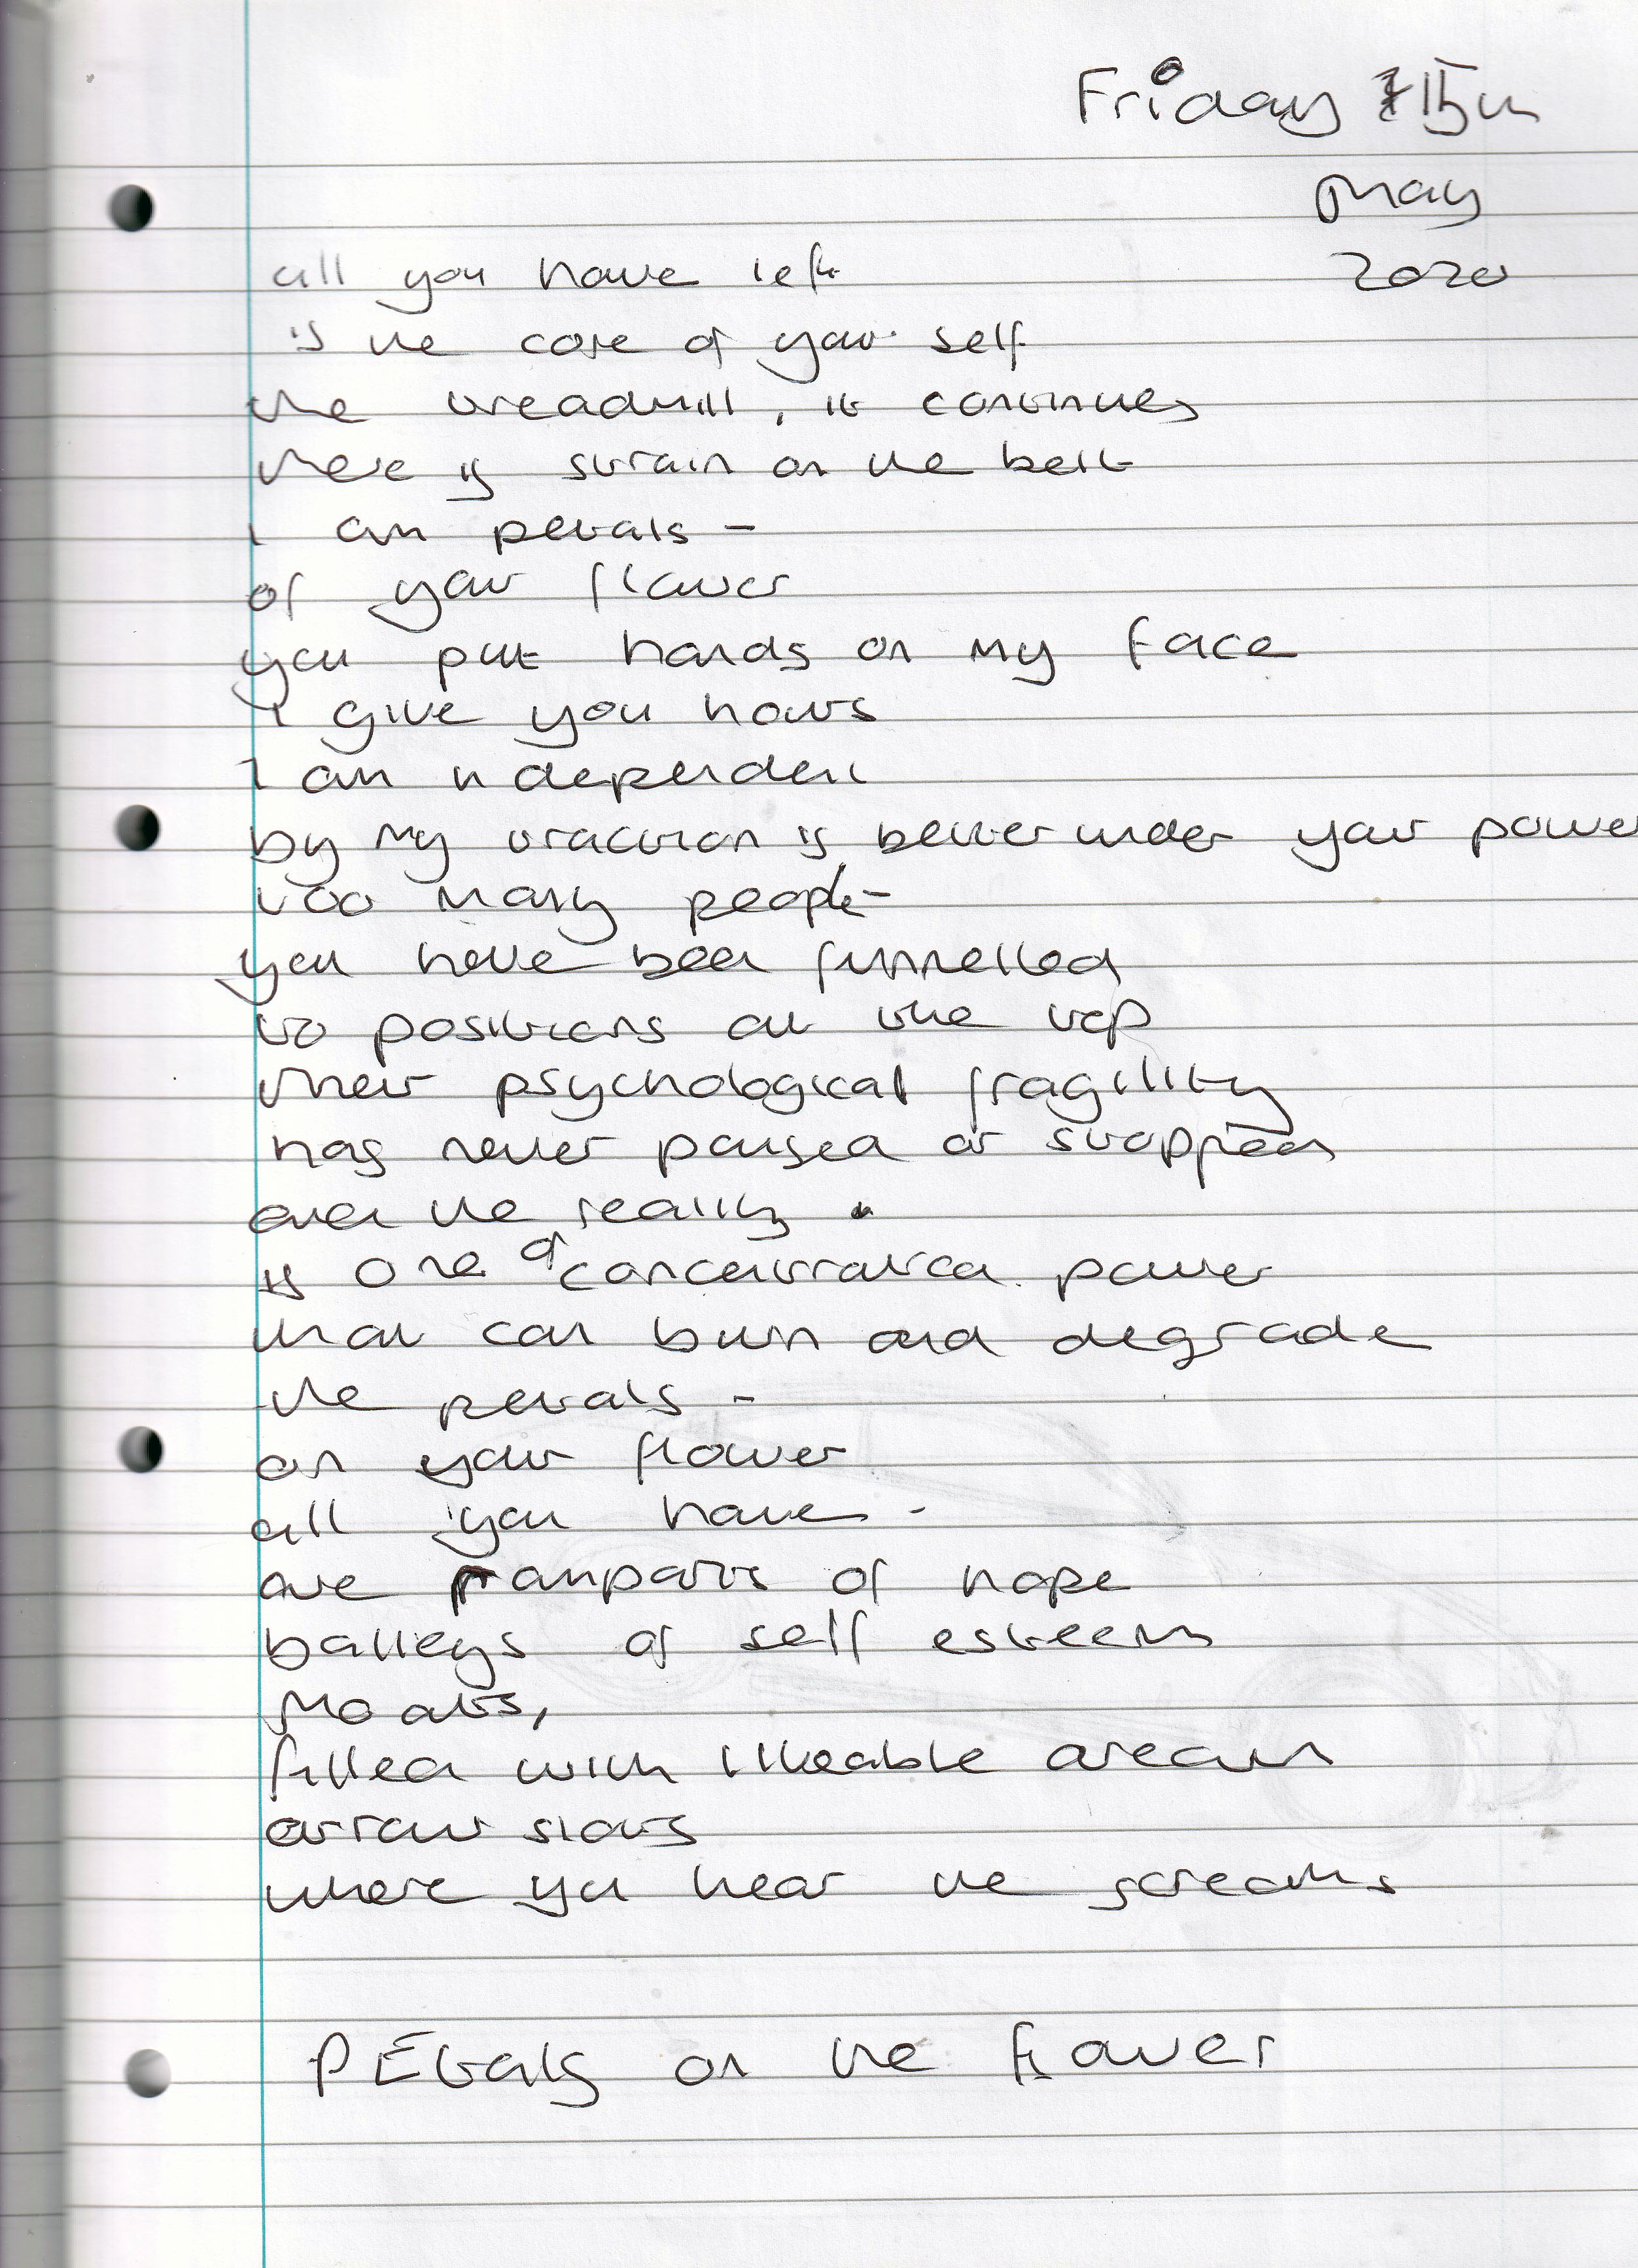 Friday 15th
May
2020
all you have left
is the core of your self
the treadmill, it continues
there is strain on the belt
I am petals -
of your flower
you put hands on my face
I give you hours
I am independent
by my traction is better under your power
too many people -
you have been funnelled
to positions at the top
their psychological fragility
has never paused or stopped
over the reality
is one of concentrated power
that can burn and degrade
the petals -
on your flower
all you have -
are ramparts of hope
baileys of self esteem
moats,
filled with likeable
arrow slots
where you hear the screams
PEtals on the flower